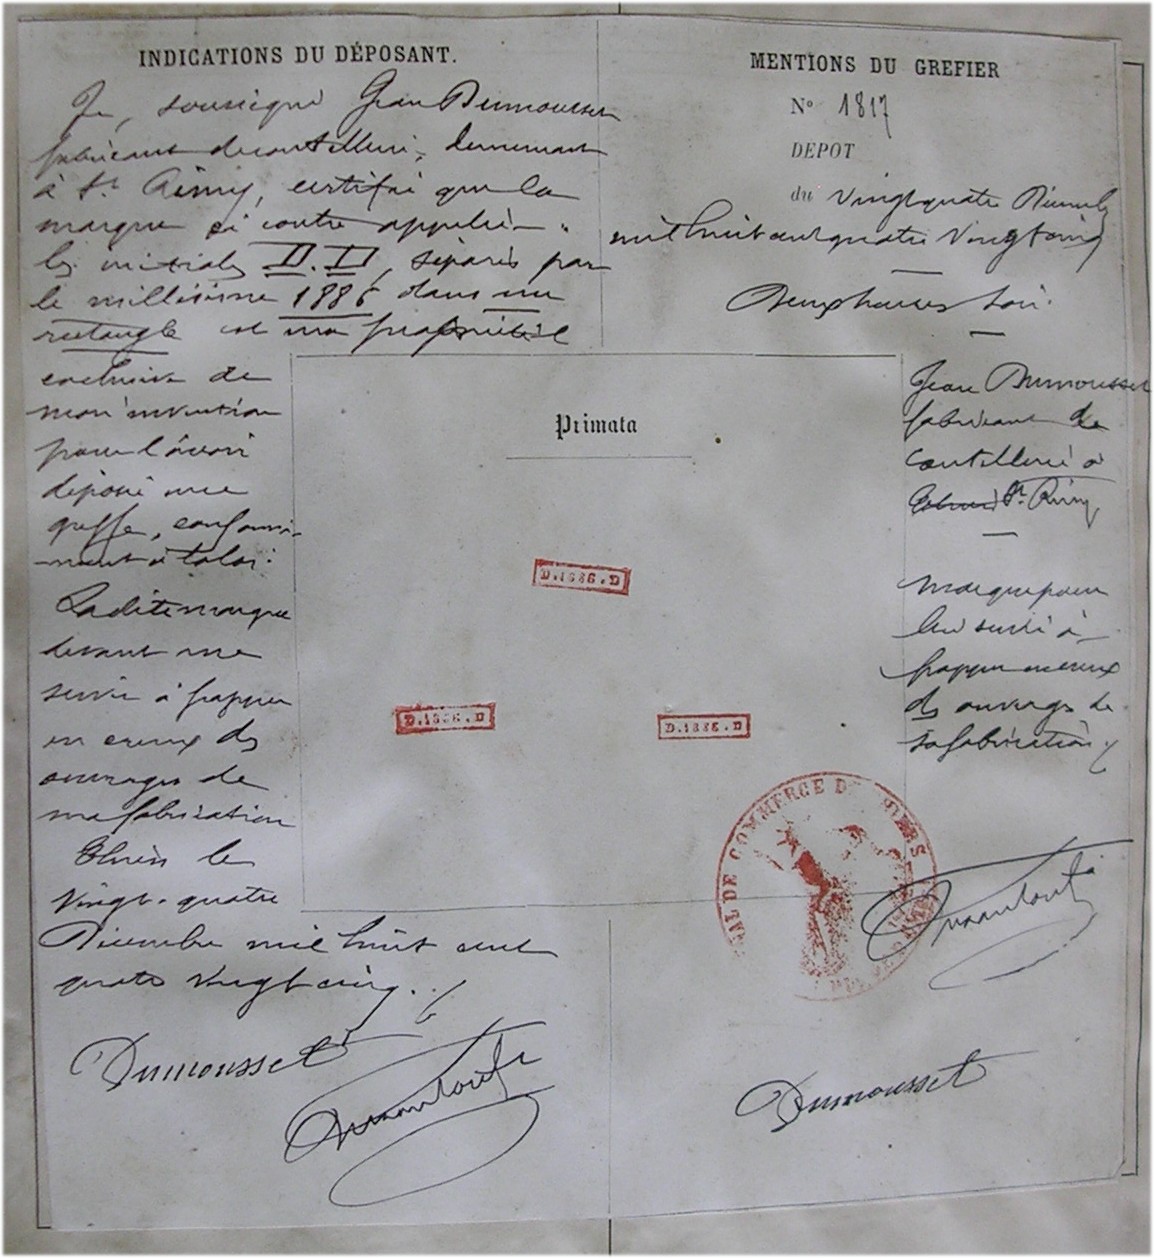 INDICATIONS DU DÉPOSANT.
Je, soussigné Jean Dumousset
fabricant de coutellerie, demeurant
à St Rémy, certifie que la
marque ci contre appelée
les initiales D.D, séparés par
le millésime 1886 dans un
rectangle est ma propriété
exclusive de
mon invention
pour l'avoir
déposé au
greffe, conformé-
ment à la loi.
Ladite marque
devant me
servir à frapper
en creux des
ouvrages de
ma fabrication
Thiers le
vingt-quatre
Décembre mil huit cent
quatre vingt cinq.
Dumousset
MENTIONS DU GREFIER
N° 1817
DEPOT
du vingt quatre Décembre
mil huit cent quatre vingt cinq
Deux heures soir
Jean Dumousset
fabricant de
coutellerie à
St Rémy
Marque pour
lui servir à
frapper en creux
des ouvrages de
sa fabrication
Primata
D.1886.D
D.1886.D
D.1886.D
AL DE COMMERCE D
Dumousset